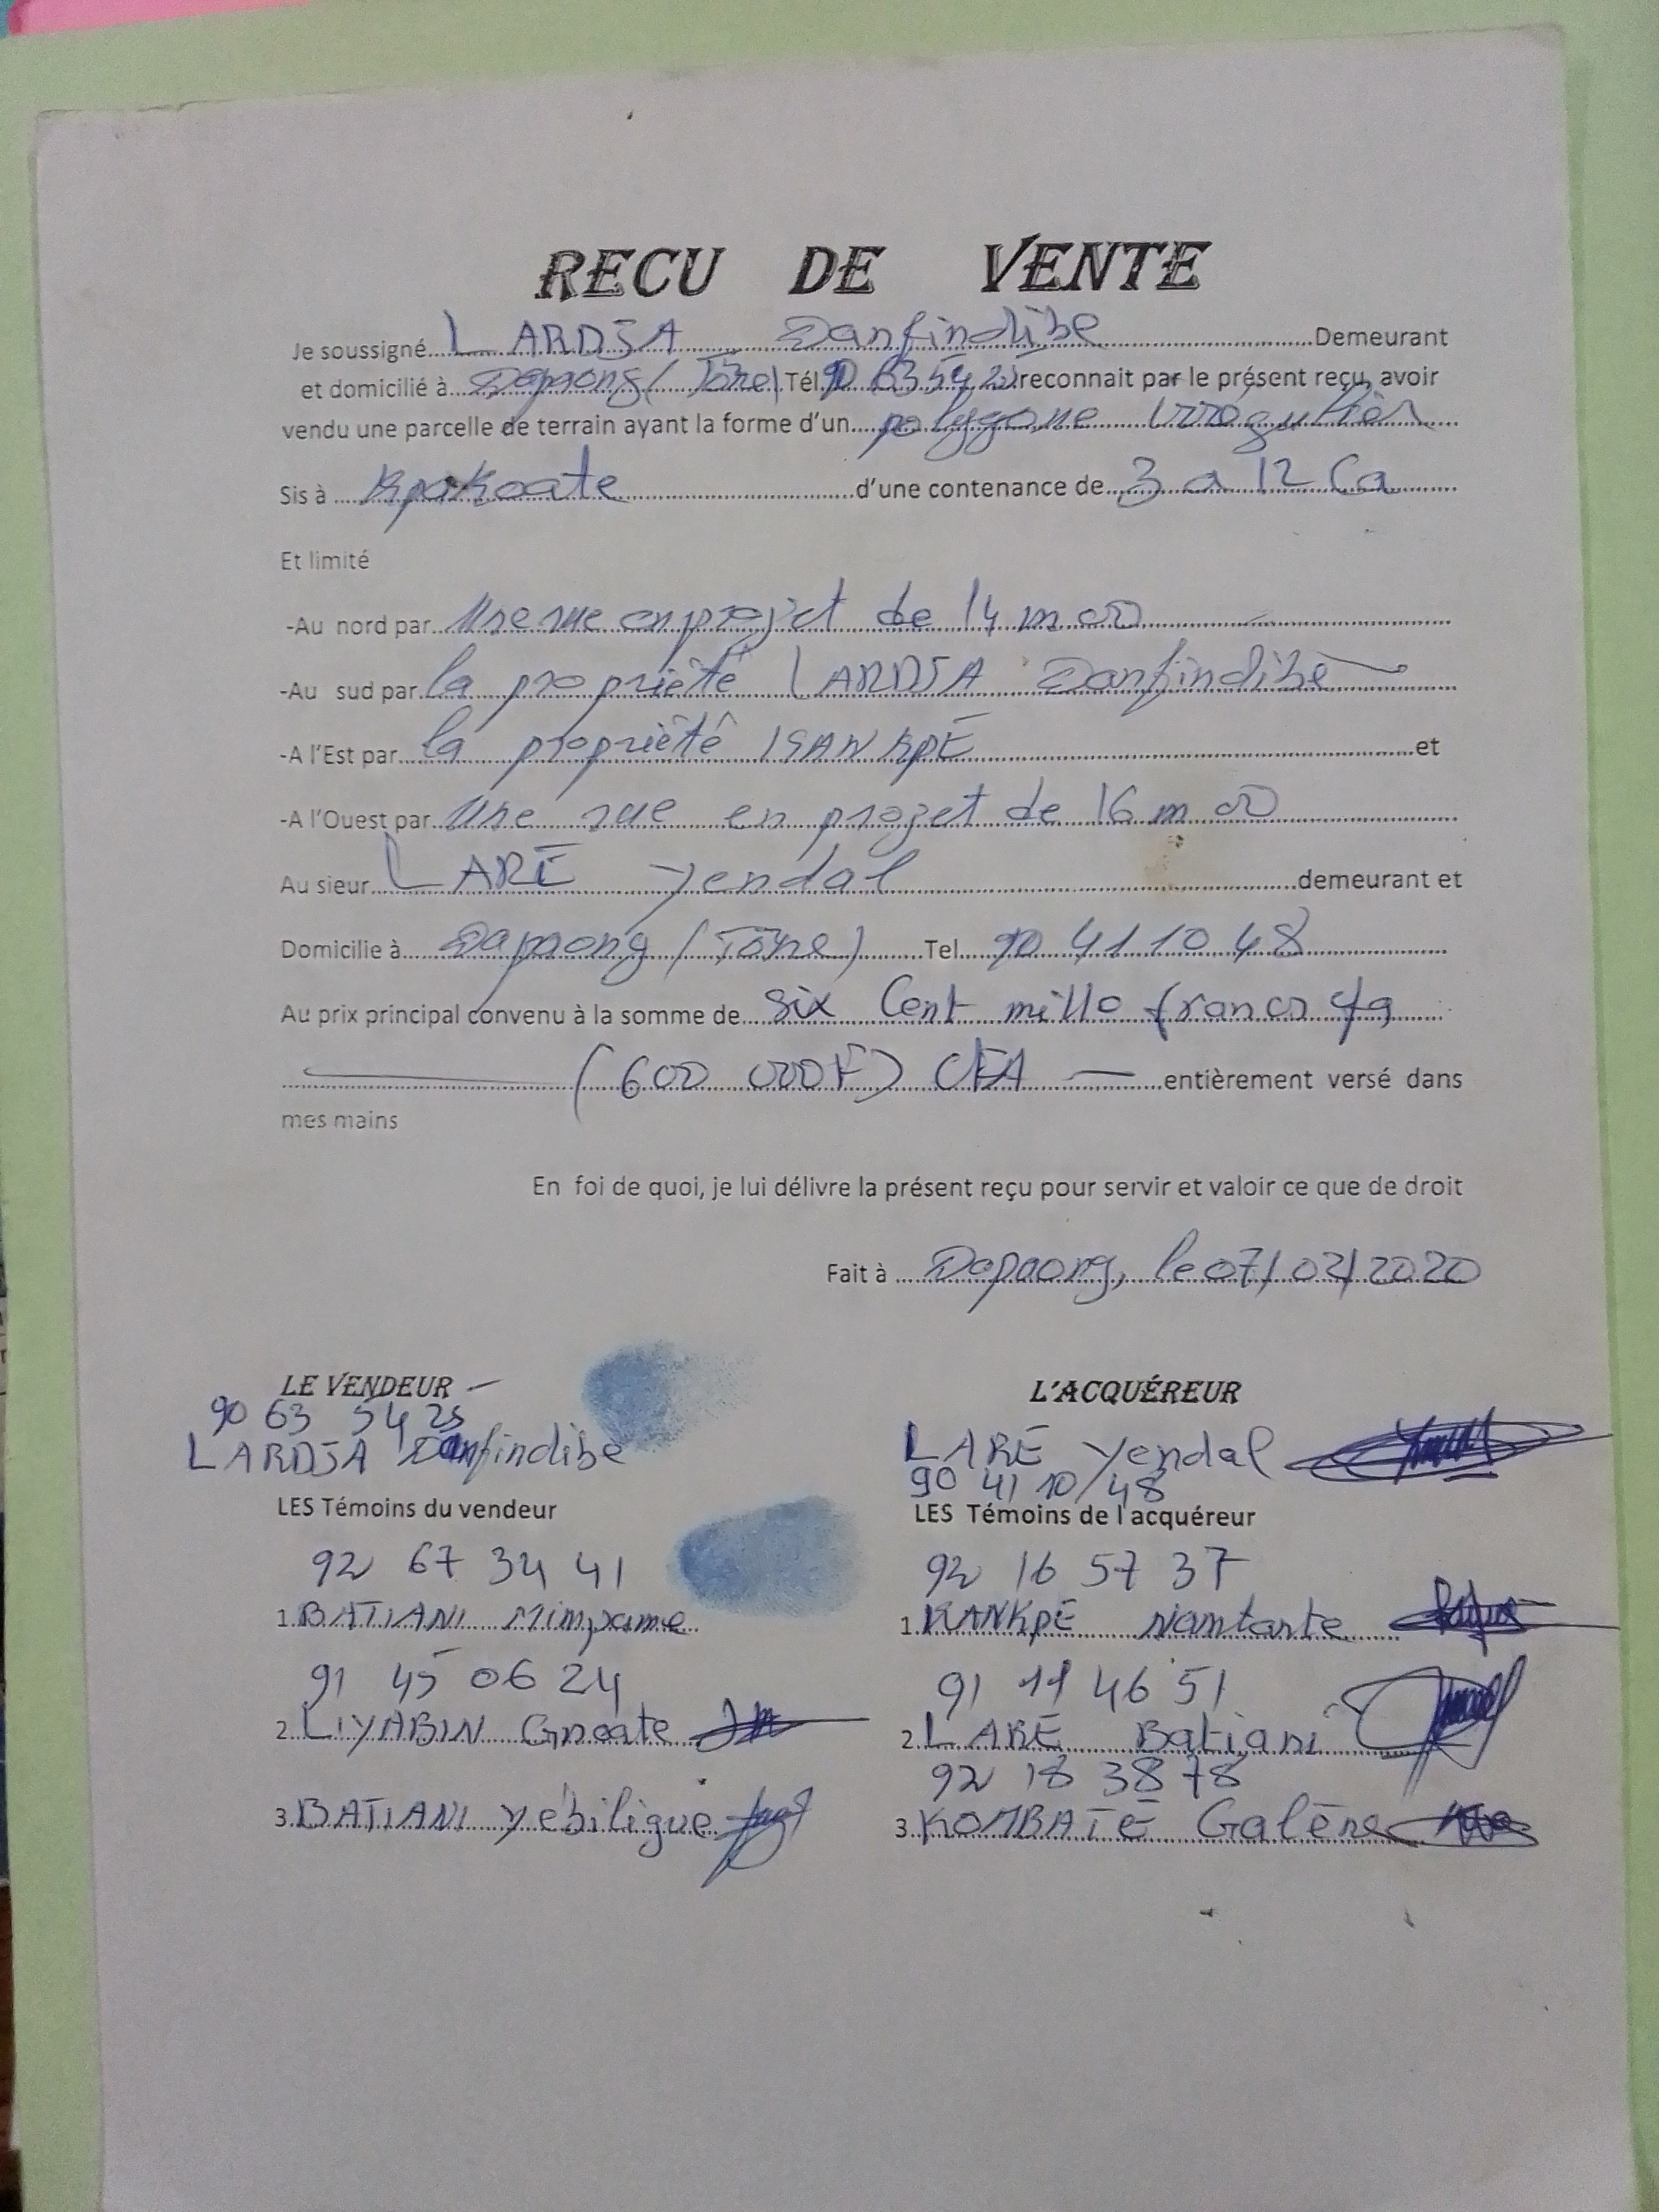 RECU DE VENTE
Je soussigné LARDJA Danfindibe Demeurant
et domicilié à Dapaong (Tône) Tél 90 63 54 25 reconnait par le présent reçu, avoir
vendu une parcelle de terrain ayant la forme d'un polygone irrégulier
Sis à Kpakoate d'une contenance de 3 a 12 Ca
Et limité
-Au nord par Une rue en projet de 14 m 00
-Au sud par la propriété LARDJA Danfindibe
-A l'Est par la propriété et
-A l'Ouest par Une rue en projet de 16 m 00
Au sieur LARE Yendal demeurant et
Domicilie à Dapaong (Tône) Tel 90 41 10 48
Au prix principal convenu à la somme de six Cent mille francs cfa
(600 000F) CFA entièrement versé dans
mes mains
En foi de quoi, je lui délivre la présent reçu pour servir et valoir ce que de droit
Fait à Dapaong, le 07/02/2020
LE VENDEUR L'ACQUÉREUR
90 63 54 25
LARDJA Danfindibe LARE Yendal
90 41 10/48
LES Témoins du vendeur LES Témoins de l'acquéreur
92 67 34 41 92 16 57 37
1. BATIANI Mimpame 1. KANKPE niamtarte
91 45 06 24 91 11 46 51
2. LIYABIN Gnoate 2. LARE Batiani
92 18 38 78
3. BATIANI Yébiligue 3. KOMBATE Galène